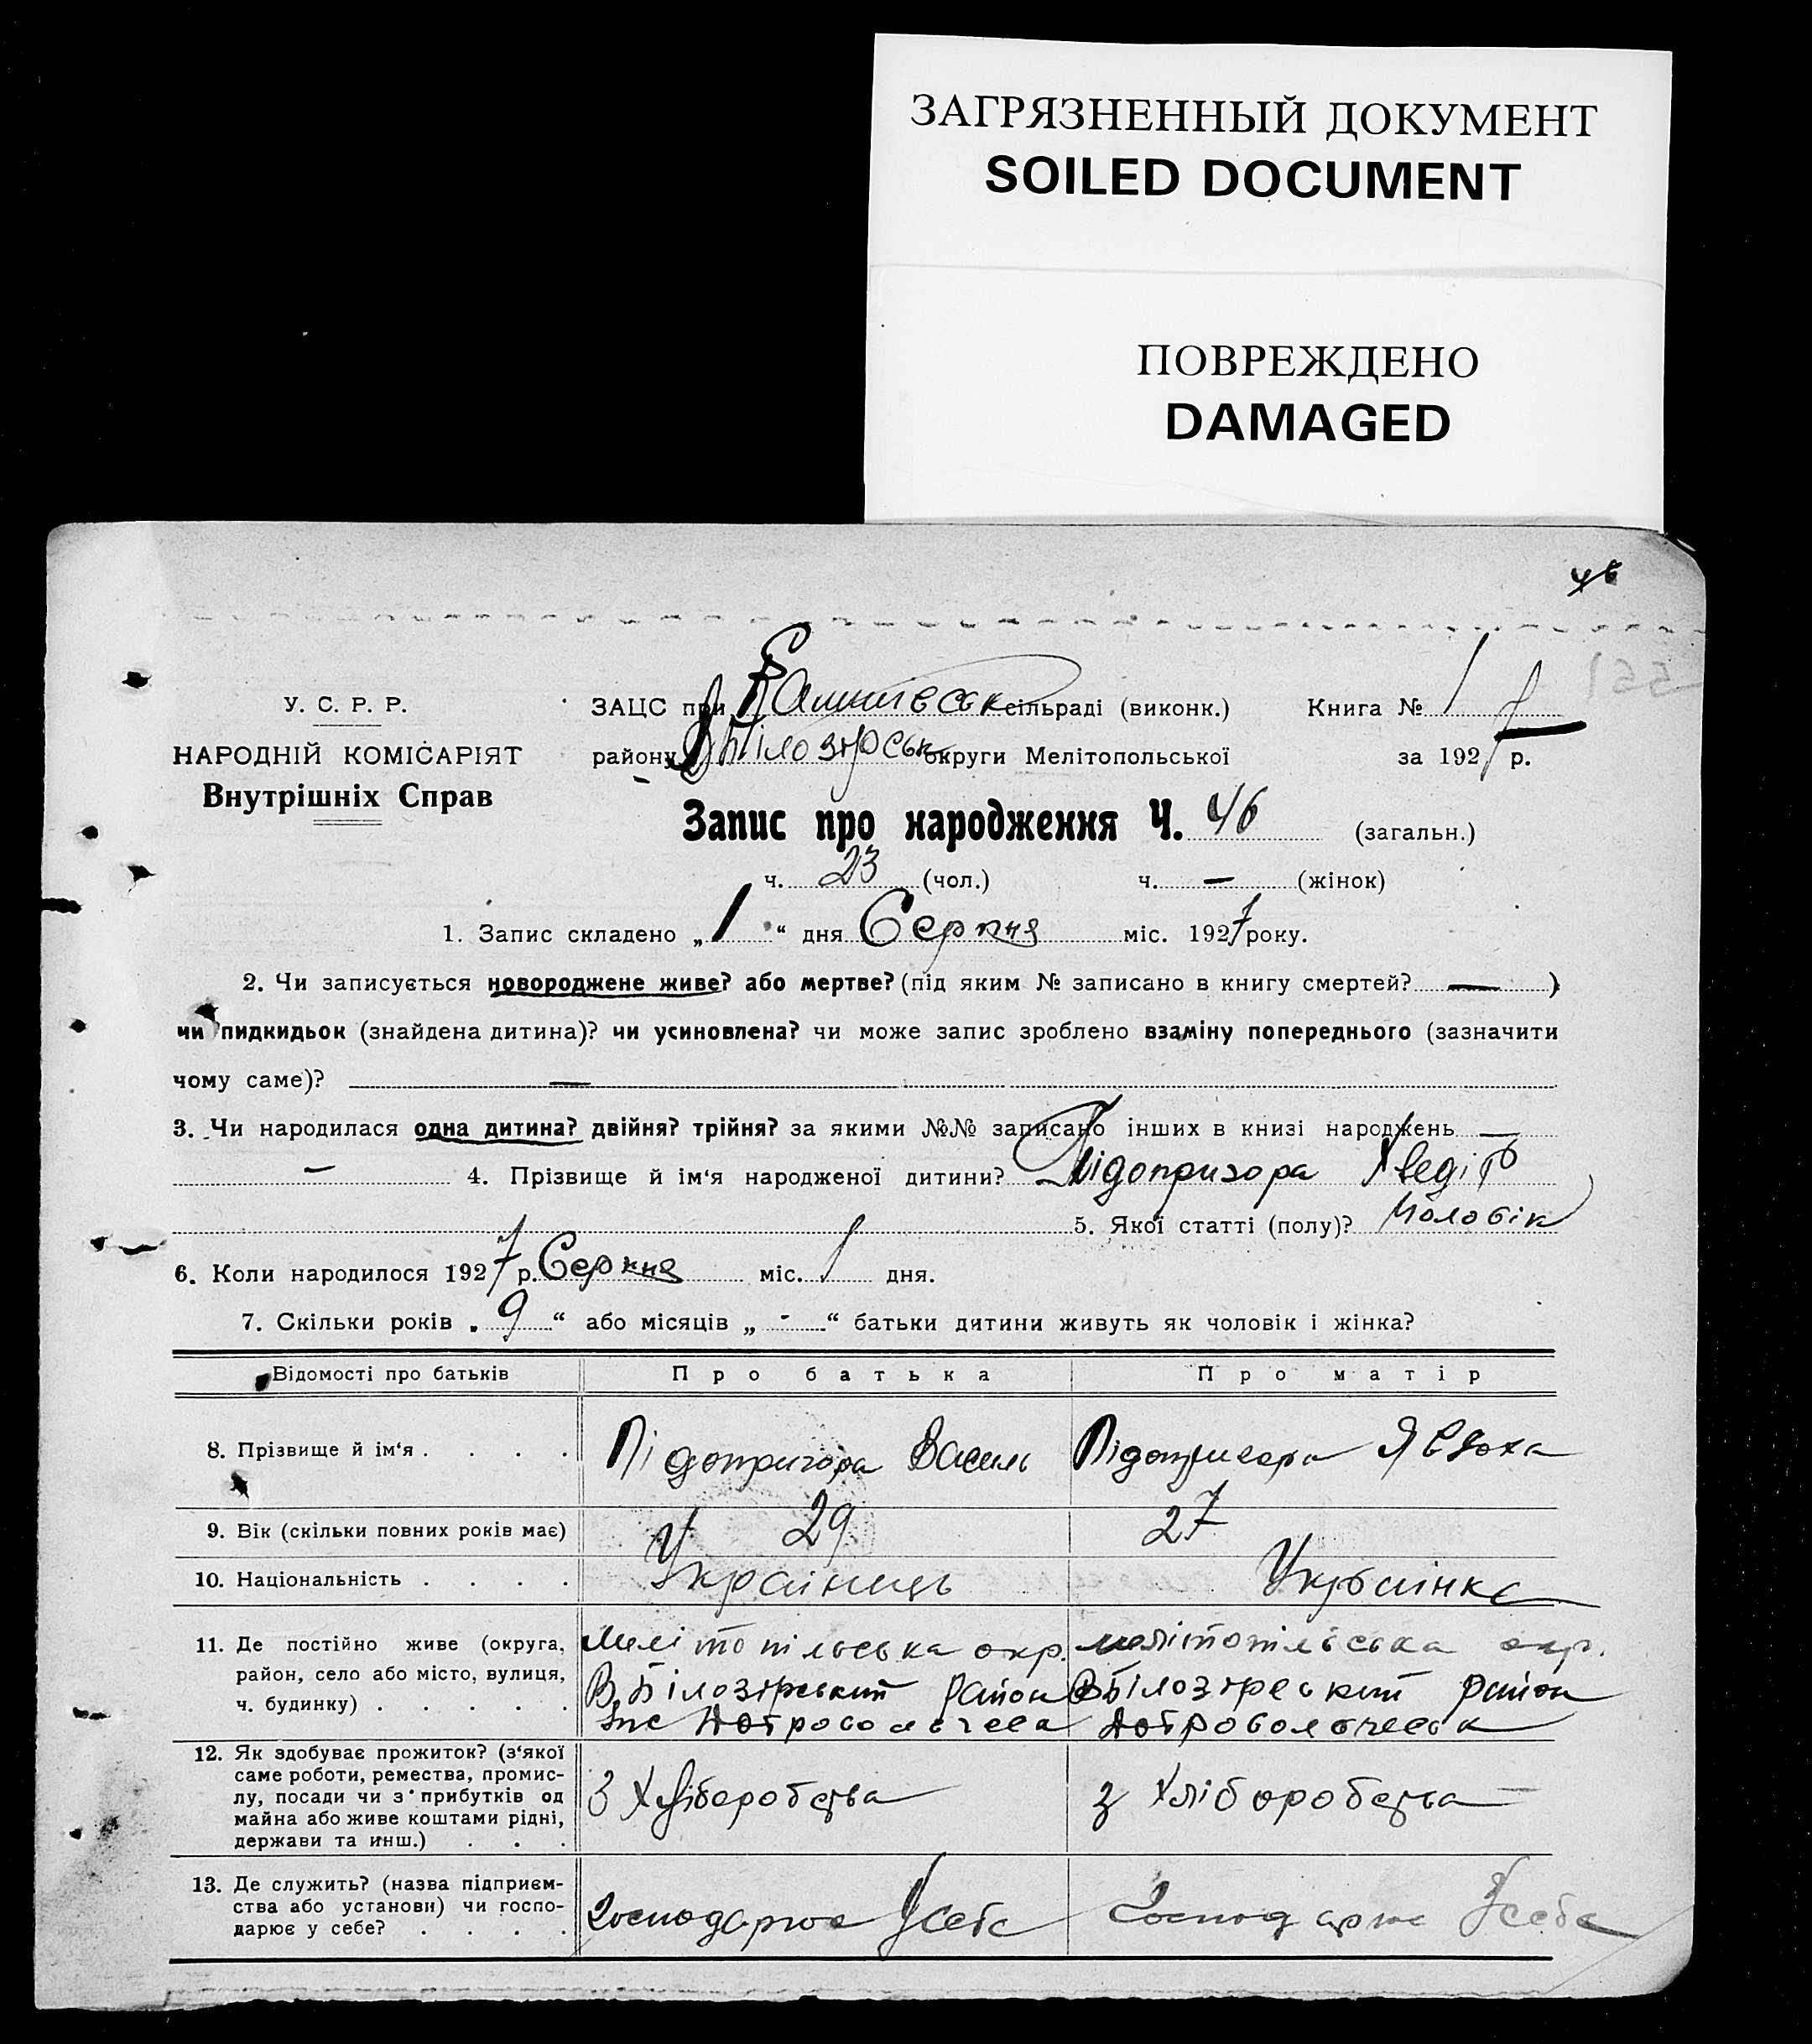 ЗАГРЯЗНЕННЫЙ ДОКУМЕНТ
SOILED DOCUMENT
ПОВРЕЖДЕНО
DAMAGED
46
У. С. Р. Р.
НАРОДНІЙ КОМІСАРІЯТ
Внутрішніх Справ
ЗАЦС при сільраді (виконк.) Книга № 1
району В Білозірськ округи Мелітопольської за 1927 р.
Запис про народження Ч. 46 (загальн.)
ч. 23 (чол.) ч. — (жінок)
1. Запис складено „1“ дня Серпня міс. 1927 року.
2. Чи записується новороджене живе? або мертве? (під яким № записано в книгу смертей? — )
чи пидкидьок (знайдена дитина)? чи усиновлена? чи може запис зроблено взаміну попереднього (зазначити
чому саме)? —
3. Чи народилася одна дитина? двійня? трійня? за якими №№ записано інших в книзі народжень —
— 4. Прізвище й ім‘я народженої дитини? Підопригора Хведір
5. Якої статті (полу)? Чоловік
6. Коли народилося 1927 р. Серпня міс. 1 дня.
7. Скільки років „9“ або місяців „-“ батьки дитини живуть як чоловік і жінка?
Відомості про батьків Про батька Про матір
8. Прізвище й ім‘я . . . . Підопригора Василь Підопригора Явдоха
9. Вік (скільки повних років має) 29 27
10. Національність . . . . Українець Українка
11. Де постійно живе (округа, район, село або місто, вулиця, ч. будинку) . . . . .
Мелітопільська окр.
В Білозірський район
мелітопільська окр.
В Білозірський район
12. Як здобуває прожиток? (з‘якої саме роботи, ремества, промислу, посади чи з прибутків од майна або живе коштами рідні, держави та инш.) . . .
З Хліборобства
з Хліборобства
13. Де служить? (назва підприємства або установи) чи господарює у себе? . . . .
Господарює Усебе
Господарює Усебе